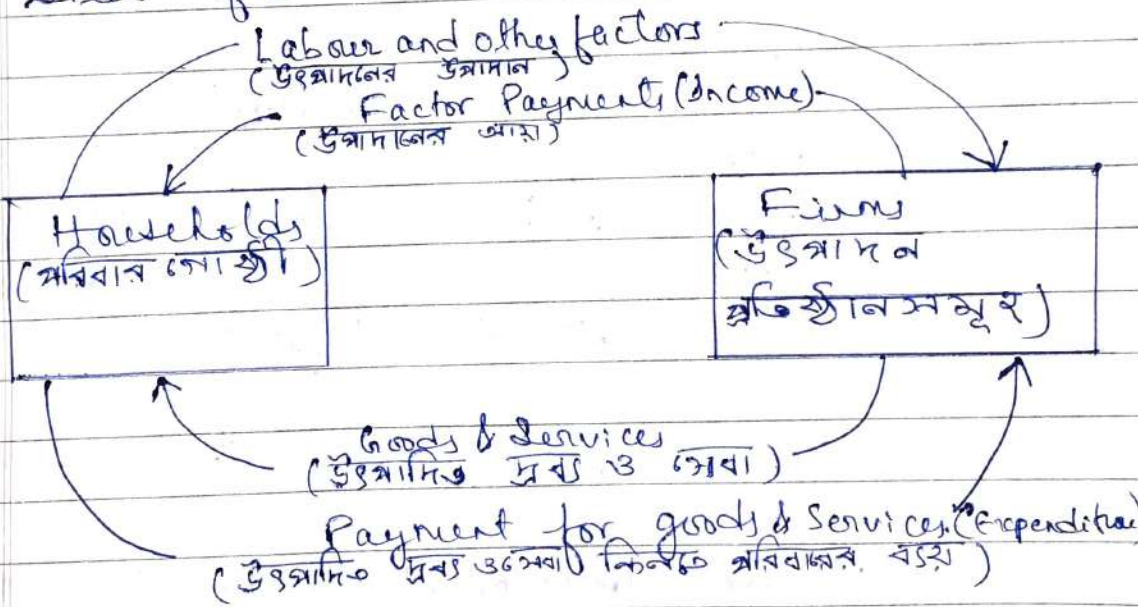 Labour and other factors
(উৎপাদনের উপাদান)
Factor Payments (Income)
(উপাদানের আয়)
Households
(পরিবার গোষ্ঠী)
Firms
(উৎপাদন
প্রতিষ্ঠানসমূহ)
Goods & Services
(উৎপাদিত দ্রব্য ও সেবা)
Payment for goods & Services. (Expenditure)
(উৎপাদিত দ্রব্য ও সেবা কিনতে পরিবারের ব্যয়)